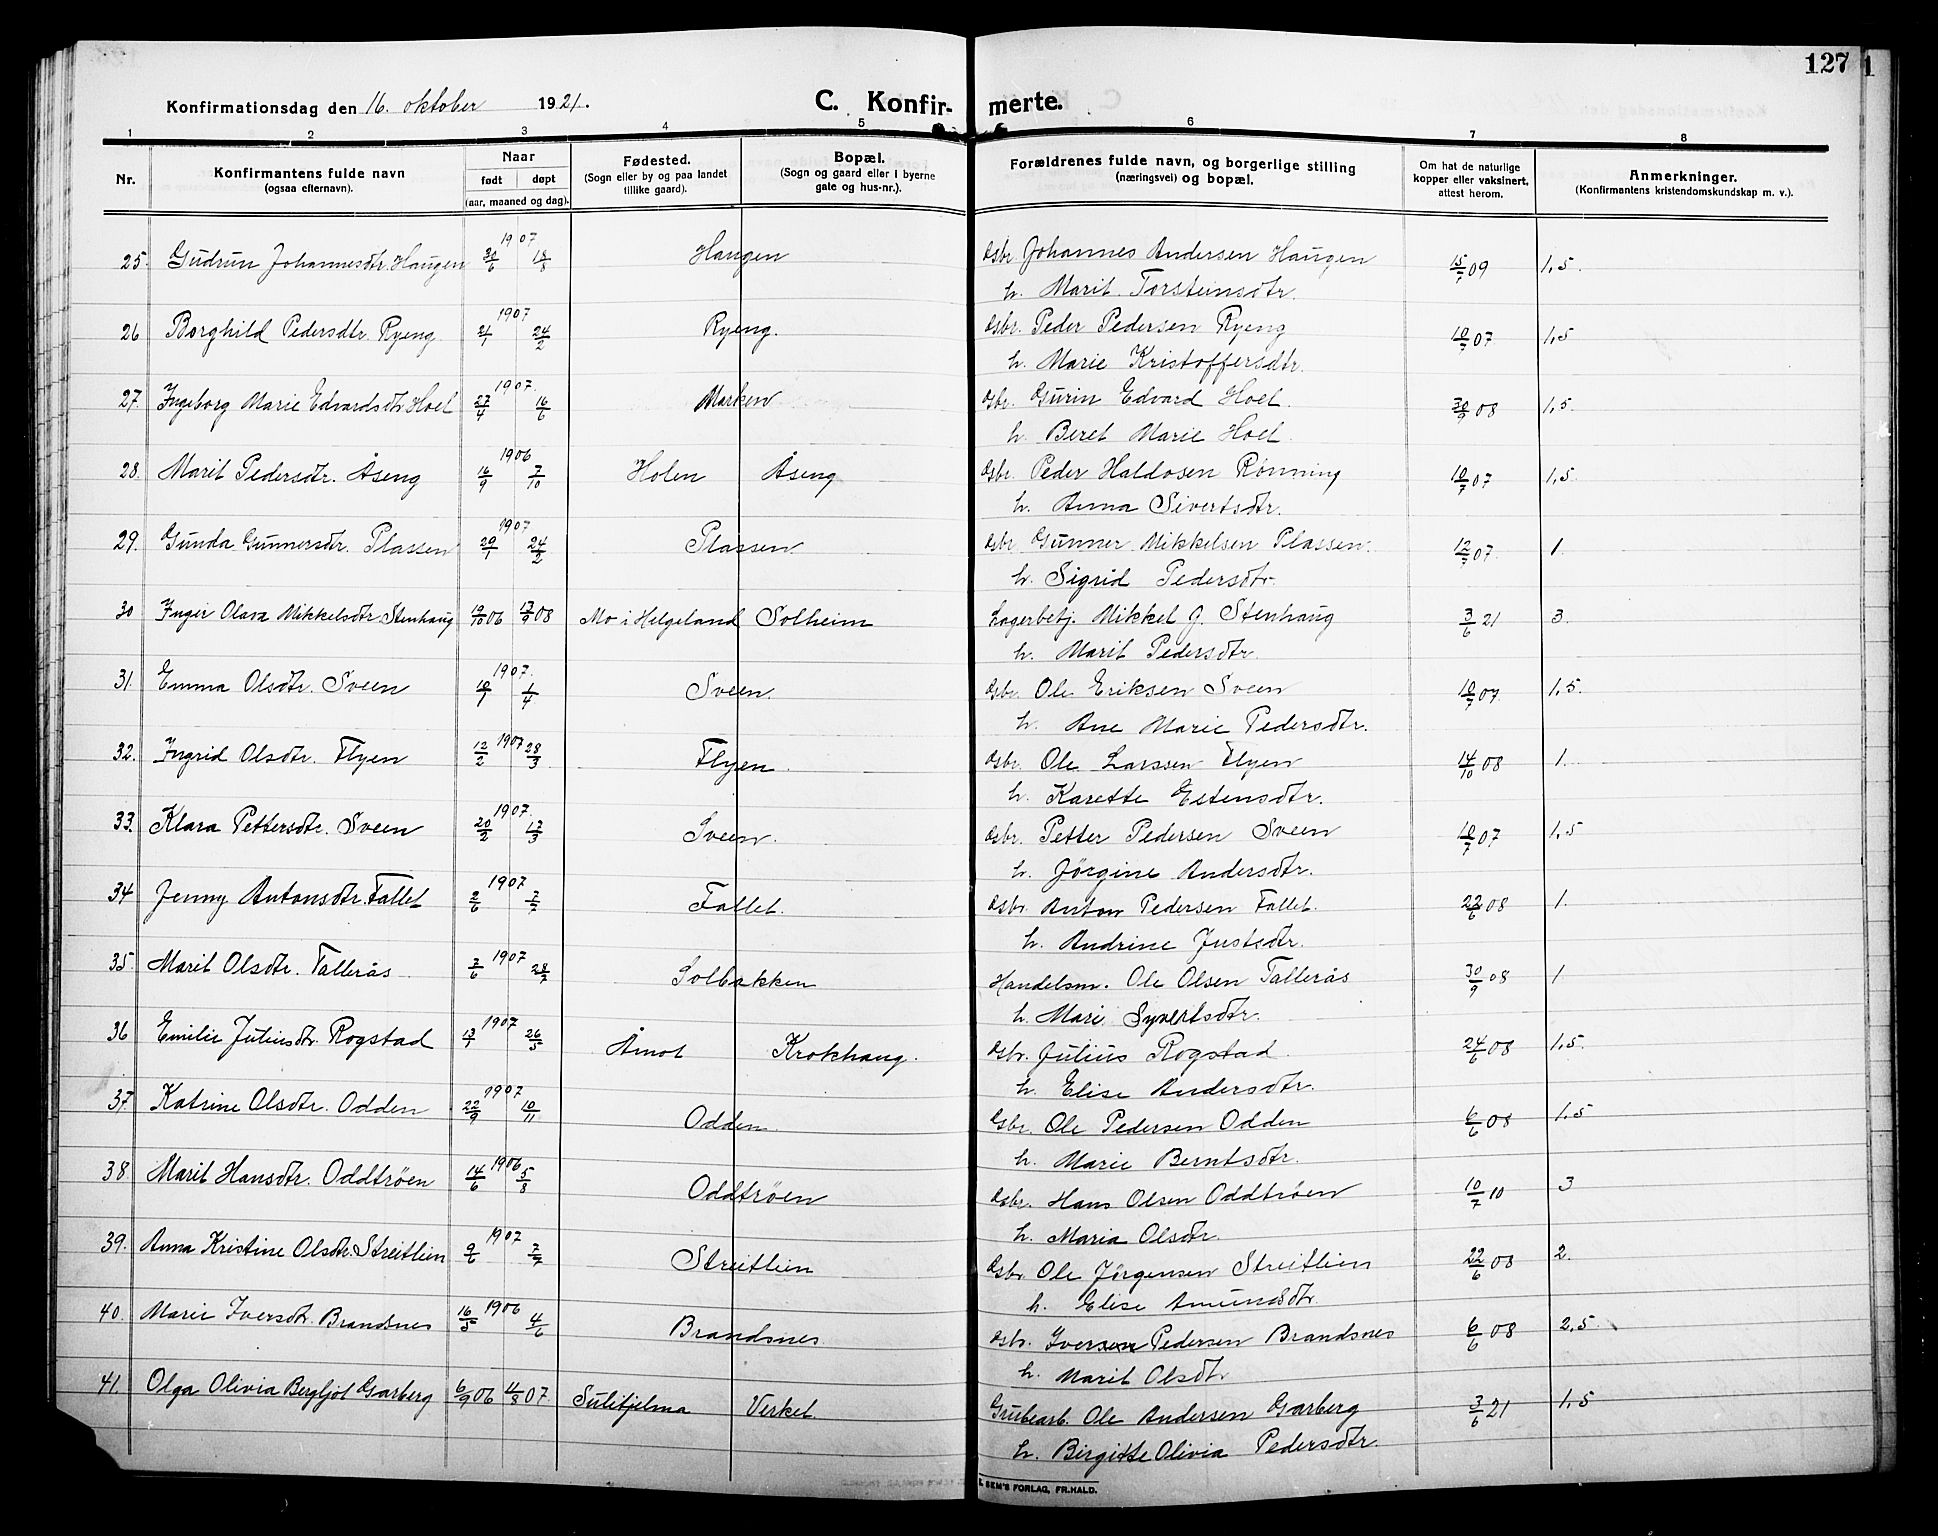 127
Konfirmationsdag den 16. oktober 1921.
C. Konfirmerte.
1 2 3 4 5 6 7 8
Nr. Konfirmantens fulde navn (ogsaa efternavn). Naar født døpt (aar, maaned og dag). Fødested. (Sogn eller by og paa landet tillike gaard). Bopæl. (Sogn og gaard eller i byerne gate og hus-nr.). Forældrenes fulde navn, og borgerlige stilling (næringsvei) og bopæl. Om hat de naturlige kopper eller vaksinert, attest herom. Anmerkninger. (Konfirmantens kristendomskundskap m. v.).
25. Gudrun Johannesdtr. Haugen 1907 30/6 18/8 Haugen Gsbr. Johannes Andersen Haugen 15/7 09 1,5.
h. Marit Torsteinsdtr.
26 Borghild Pedersdtr. Ryeng 1907 21/1 24/2 Ryeng. Gsbr. Peder Pedersen Ryeng 10/7 07 1,5
h. Marie Kristoffersdtr.
27. Ingeborg Marie Edvardsdtr. Hoel 1907. 27/4 16/6 Marken Gsbr. Gurin Edvard Hoel. 30/9 08 1,5.
h. Beret Marie Hoel.
28. Marit Pedersdtr. Åseng 1906 16/9 7/10 Holen Åseng Gsbr. Peder Haldosen Rønning 10/7 07 1,5.
h. Anna Sivertsdtr.
29. Gunda Gunnersdtr. Plassen 1907 20/1 24/2 Plassen Gsbr. Gunner Mikkelsen Plassen. 12/7 07. 1.
h. Sigrid Pedersdtr.
30 Inger Olava Mikkelsdtr. Stenhaug 19/10 06 13/9 08 Mo i Helgeland Solheim Lagerbetj. Mikkel J. Stenhaug 3/6 21 3.
h. Marit Pedersdtr.
31. Emma Olsdtr. Sveen 1907. 10/1 1/4 Sveen. Gsbr. Ole Eriksen Sveen 10/7 07 1,5.
h. Ane Marie Pedersdtr.
32. Ingrid Olsdtr. Flyen 1907 12/2 28/3 Flyen. Gsbr. Ole Larssen Flyen 14/10 08 1.
h. Karette Estensdtr.
33. Klara Pettersdtr. Sveen 1907. 20/2 17/3 Sveen. Gsbr. Petter Pedersen Sveen 10/7 07 1,5
h. Jørgine Andersdtr.
34 Jenny Antonsdtr. Fallet 1907 2/6 7/7 Fallet. Gsbr. Anton Pedersen Fallet. 22/6 08 1.
h. Andrine Justsdtr.
35. Marit Olsdtr. Tallerås 1907 7/6 28/7 Solbakken Handelsm. Ole Olsen Tallerås 30/9 08 1
h. Mari Syvertsdtr.
36 Emilie Juliusdtr. Rogstad 1907 13/1 26/5 Åmot Krokhaug. Gsbr. Julius Rogstad 24/6 08 1,5.
h. Elise Andersdtr.
37. Katrine Olsdtr. Odden 1907 22/9 10/11 Odden. Gsbr. Ole Pedersen Odden 6/6 08 1,5
h. Marie Berntsdtr.
38. Marit Hansdtr. Oddtrøen 1906 14/6 5/8 Oddtrøen Gsbr. Hans Olsen Oddtrøen 10/7 10 3
h. Maria Olsdtr.
39. Anna Kristine Olsdtr. Streitlien 1907 9/6 7/7 Streitlien Gsbr. Ole Jørgensen Streitlien 22/6 08 2.
h. Elise Amundsdtr.
40. Marie Iversdtr. Brandsnes 1906 16/5 4/6 Brandsnes. Gsbr. Iver Pedersen Brandsnes 6/6 08 2,5.
h. Marit Olsdtr.
41. Olga Olivia Bergljot Garberg 6/9 06 11/8 07. Sulitjelma Verket. Grubearb. Ole Andersen Garberg 3/6 21 1,5
h. Birgitte Olivia Pedersdtr.
SEM'S FORLAG, FR.HALD.